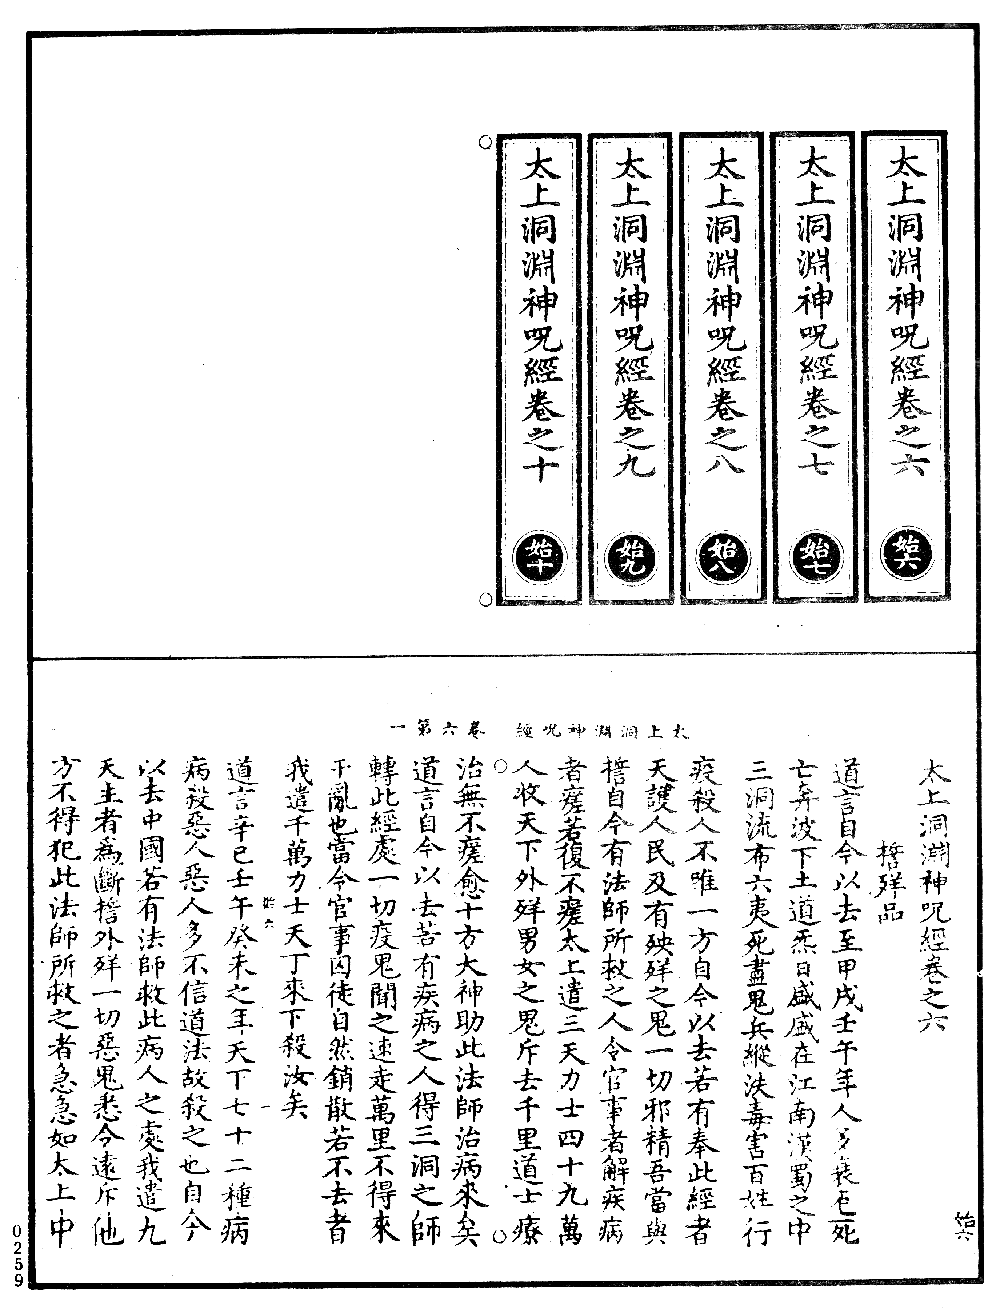 太上洞淵神呪經卷之六
始六
太上洞淵神呪經卷之七
始七
太上洞淵神呪經卷之八
始八
太上洞淵神呪經卷之九
始九
太上洞淵神呪經卷之十
始十
太上洞淵神呪經 卷六第一
始六
太上洞淵神呪經卷之六
誓殃品
道言自今以去至甲戌壬午年人多衰厄死
亡奔波下土道炁日盛盛在江南漢蜀之中
三洞流布六夷死盡鬼兵縱泆毒害百姓行
疫殺人不唯一方自今以去若有奉此經者
天護人民及有殃殃之鬼一切邪精吾當與
誓自今有法師所救之人令官事者解疾病
者瘥若復不瘥太上遣三天力士四十九萬
人收天下外殃男女之鬼斥去千里道士療
治無不瘥愈十方大神助此法師治病來矣
道言自今以去苦有疾病之人得三洞之師
轉此經處一切疫鬼聞之速走萬里不得來
干亂也當令官事囚徒自然銷散若不去者
我遣千萬力士天丁來下殺汝矣
始六 一
道言辛巳壬午癸未之年天下七十二種病
病殺惡人惡人多不信道法故殺之也自今
以去中國若有法師救此病人之處我遣九
天主者為斷誓外殃一切惡鬼悉令遠斥他
方不得犯此法師所救之者急急如太上中
0259